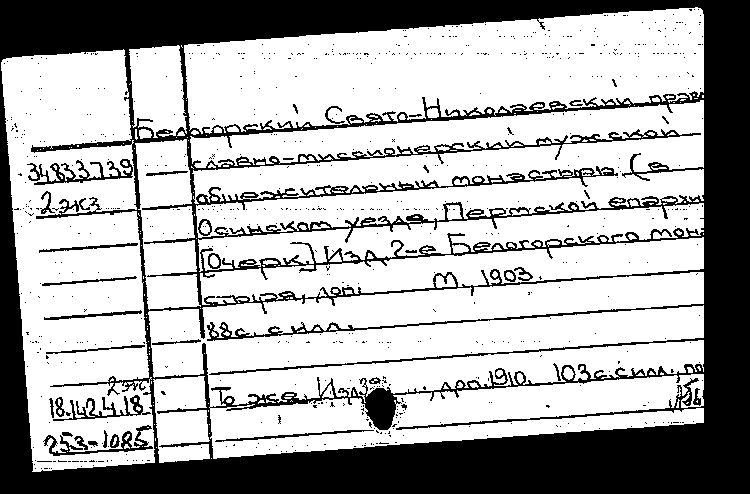 Белогорский Свято-Николаевский право
34.833.739 славно-миссионерский мужской
2 экз общежительный монастырь (в
Осинском уезде, Пермской епархии
[Очерк.] Изд. 2-е Белогорского мона
стыря, доп. М., 1903.
88 с. с илл.
2 экз.
18.142.4.18 То же. Изд. 3е ..., доп. 1910. 103 с. с илл.,
253-1085